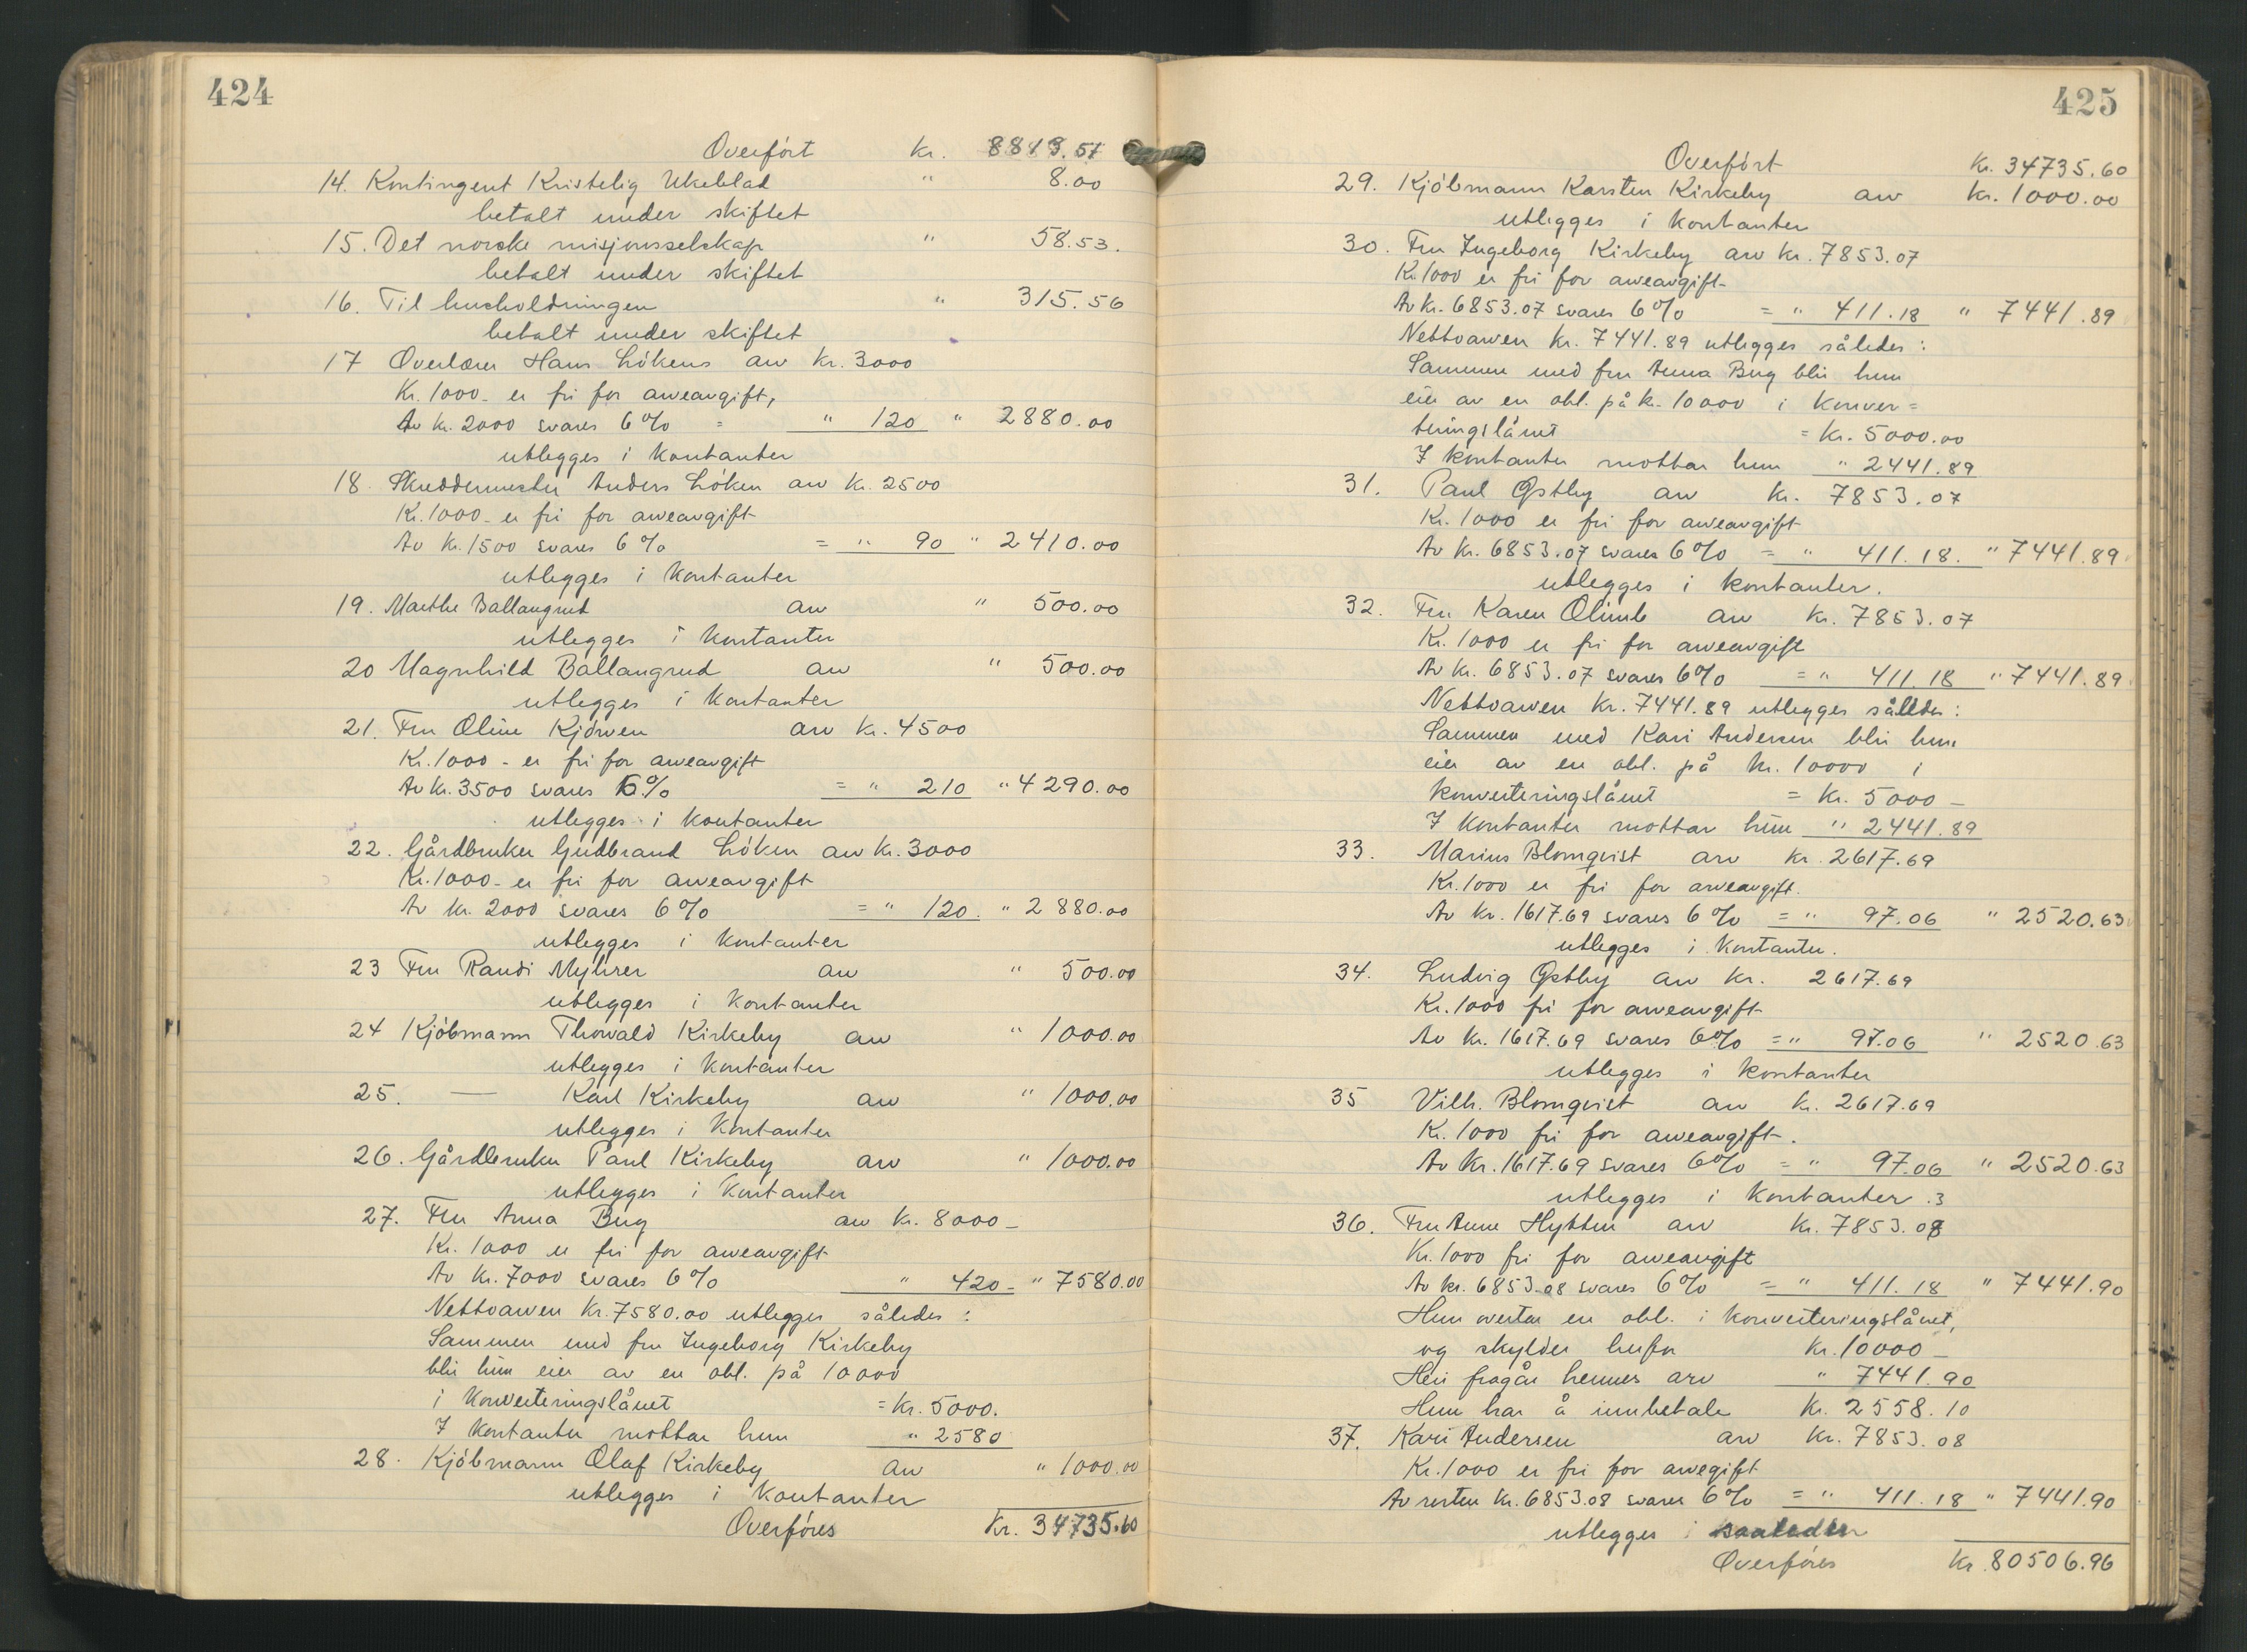 424
Overført kr. 8813.51
14. Kontingent Kristelig Ukeblad " 8.00
betalt under skiftet
15. Det norske misjonsselskap " 58.53.
betalt under skiftet
16. Til husholdningen " 315.56
betalt under skiftet
17 Overlærer Hans Løkens arv kr. 3000
Kr. 1000 - er fri for arveavgift,
Av kr. 2000 svares 6% = " 120 " 2880.00
utlegges i kontanter
18. Skreddermester Anders Løken arv kr. 2500
Kr. 1000 - er fri for arveavgift
Av kr. 1500 svares 6% = " 90 " 2410.00
utlegges i kontanter
19. Marthe Ballangrud arv " 500.00
utlegges i kontanter
20 Magnhild Ballangrud arv " 500.00
utlegges i kontanter
21. Fru Oline Kjørven arv kr. 4500
Kr. 1000 - er fri for arveavgift
Av kr. 3500 svares 6% = " 210 " 4290.00
utlegges i kontanter
22. Gårdbruker Gudbrand Løken arv kr. 3000
Kr. 1000 - er fri for arveavgift
Av kr. 2000 svares 6% = " 120. " 2880.00
utlegges i kontanter
23 Fru Randi Myhrer arv " 500.00
utlegges i kontanter
24 Kjøbmann Thorvald Kirkeby arv " 1000.00
utlegges i kontanter
25. — Karl Kirkeby arv " 1000.00
utlegges i kontanter
26. Gårdbruker Paul Kirkeby arv " 1000.00
utlegges i kontanter
27. Fru Anna Bug arv kr. 8000 -
Kr. 1000 er fri for arveavgift
Av kr. 7000 svares 6% " 420 - " 7580.00
Nettoarven kr. 7580.00 utlegges således :
Sammen med fru Ingeborg Kirkeby
blir hun eier av en obl. på 10000
i konverteringslånet = kr. 5000.
I kontanter mottar hun " 2580
28. Kjøbmann Olaf Kirkeby arv " 1000.00
utlegges i kontanter
Overføres Kr. 34735.60
425
Overført Kr. 34735.60
29. Kjøbmann Karsten Kirkeby arv kr. 1000.00
utlegges i kontanter
30. Fru Ingeborg Kirkeby arv kr. 7853.07
Kr. 1000 er fri for arveavgift
Av kr. 6853.07 svares 6% = " 411.18 " 7441.89
Nettoarven kr. 7441.89 utlegges således :
Sammen med fru Anna Bug blir hun
eier av en obl. på kr. 10000 i konver=
teringslånet = kr. 5000.00
I kontanter mottar hun " 2441.89
31. Paul Østby arv kr. 7853.07
Kr. 1000 er fri for arveavgift
Av kr. 6853.07 svares 6% = " 411.18. " 7441.89
utlegges i kontanter.
32. Fru Karen Olimb arv kr. 7853.07
Kr. 1000 er fri for arveavgift
Av kr. 6853.07 svares 6% = " 411 18 " 7441.89
Nettoarven kr. 7441.89 utlegges således :
Sammen med Kari Andersen blir hun
eier av en obl. på kr. 10000 i
konverteringslånet = kr. 5000 -
I kontanter mottar hun " 2441.89
33. Marius Blomqvist arv kr. 2617.69
Kr. 1000 er fri for arveavgift.
Av kr. 1617.69 svares 6% = " 97.06 " 2520.63
utlegges i kontanter.
34. Ludvig Østby arv kr. 2617.69
Kr. 1000 fri for arveavgift
Av kr. 1617.69 svares 6% = " 97.06 " 2520.63
utlegges i kontanter
35 Vilh. Blomqvist arv kr. 2617.69
Kr. 1000 fri for arveavgift.
Av kr. 1617.69 svares 6% = " 97.06 " 2520.63
utlegges i kontanter.
36. Fru Anne Hytten arv kr. 7853.08
Kr. 1000 fri for arveavgift
Av kr. 6853.08 svares 6% = " 411.18 " 7441.90
Hun overtar en obl. i konverteringslånet,
og skylder herfor kr. 10000 -
Heri fragår hennes arv " 7441.90
Hun har å innbetale kr. 2558.10
37. Kari Andersen arv kr. 7853.08
Kr. 1000 er fri for arvegift
Av resten kr. 6853.08 svares 6% = " 411.18 " 7441.90
utlegges saaledes
Overføres Kr. 80506.96